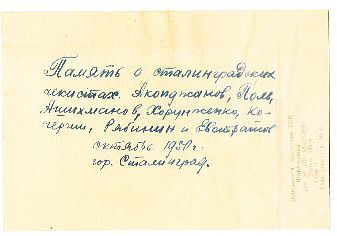 Память о сталинградских
чекистах. Акопджанов, Поль,
Ашихманов, Хорунженко, Ко-
чергин, Рябинин и Евстратов
октябрь 1951г.
гор. Сталинград.